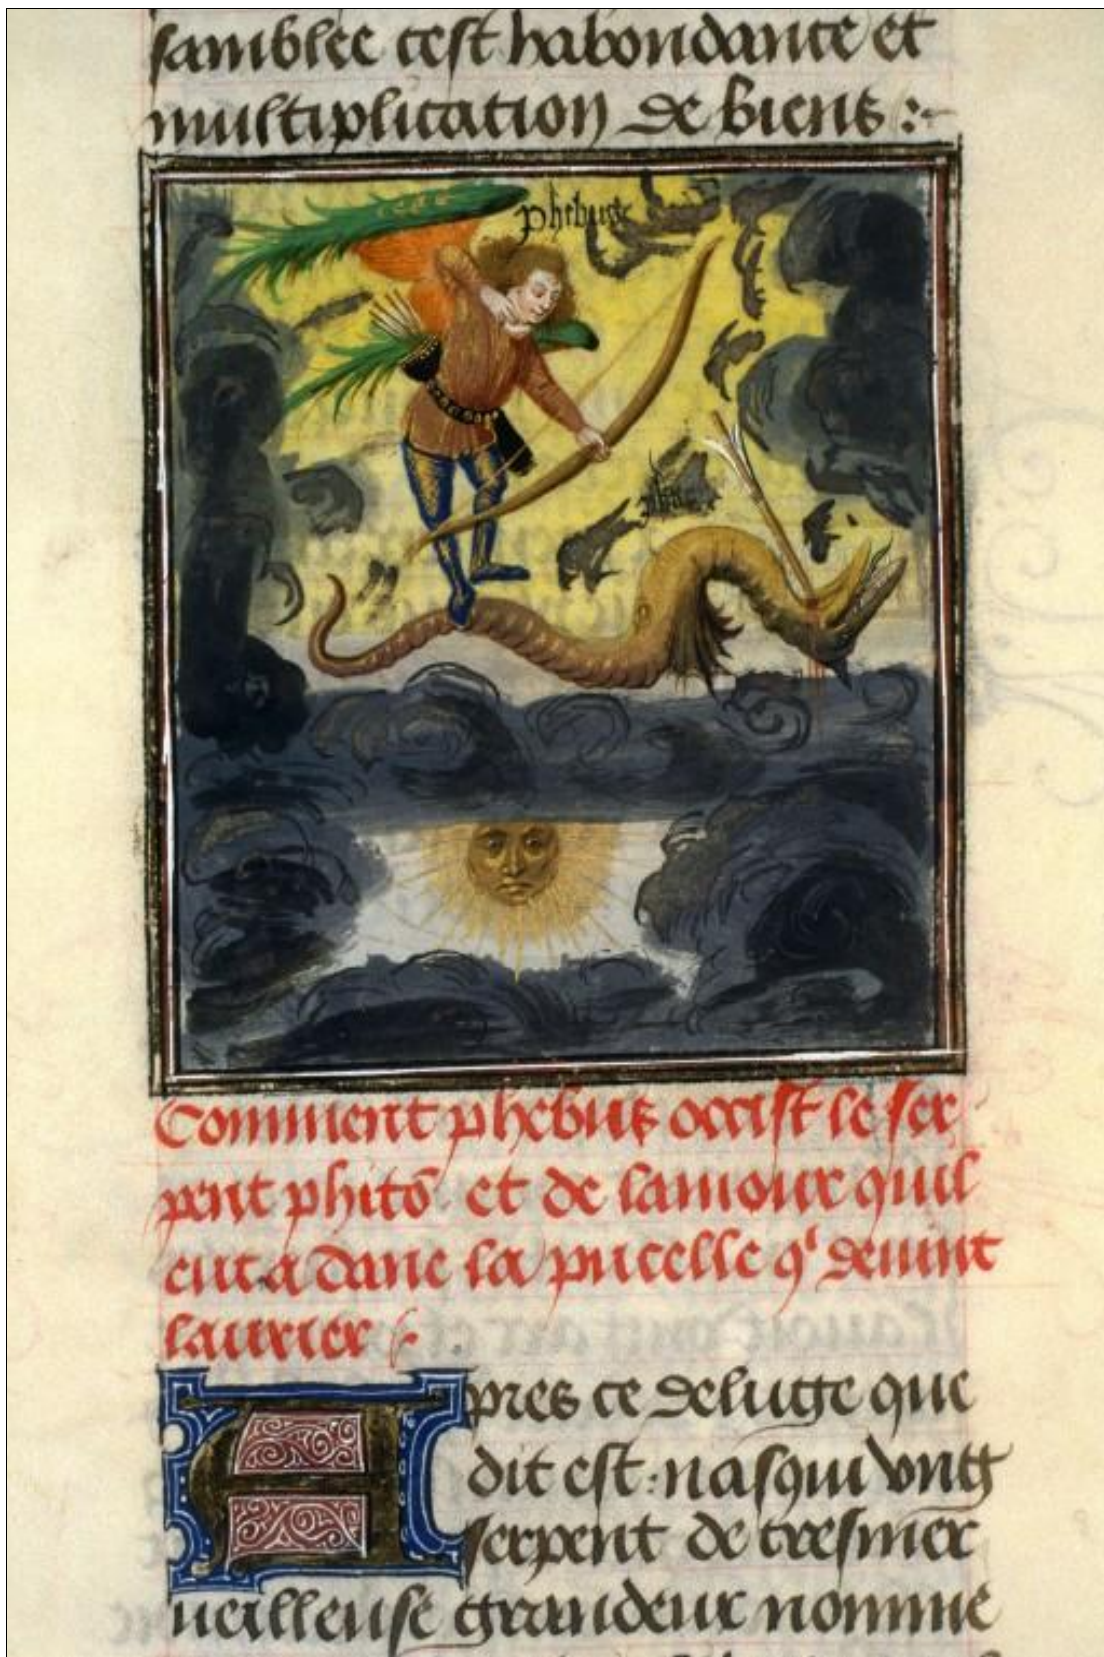 samblee cest habondance et
multiplication de biens :~
phebus
Comment phebus occist le ser
pent phitō et de lamour quil
eut a dane la pucelle qⁱ deuint
laurier
Apres ce deluge que
dit est : nasqui vng
serpent de tresmer
ueilleuse grandeur nomme